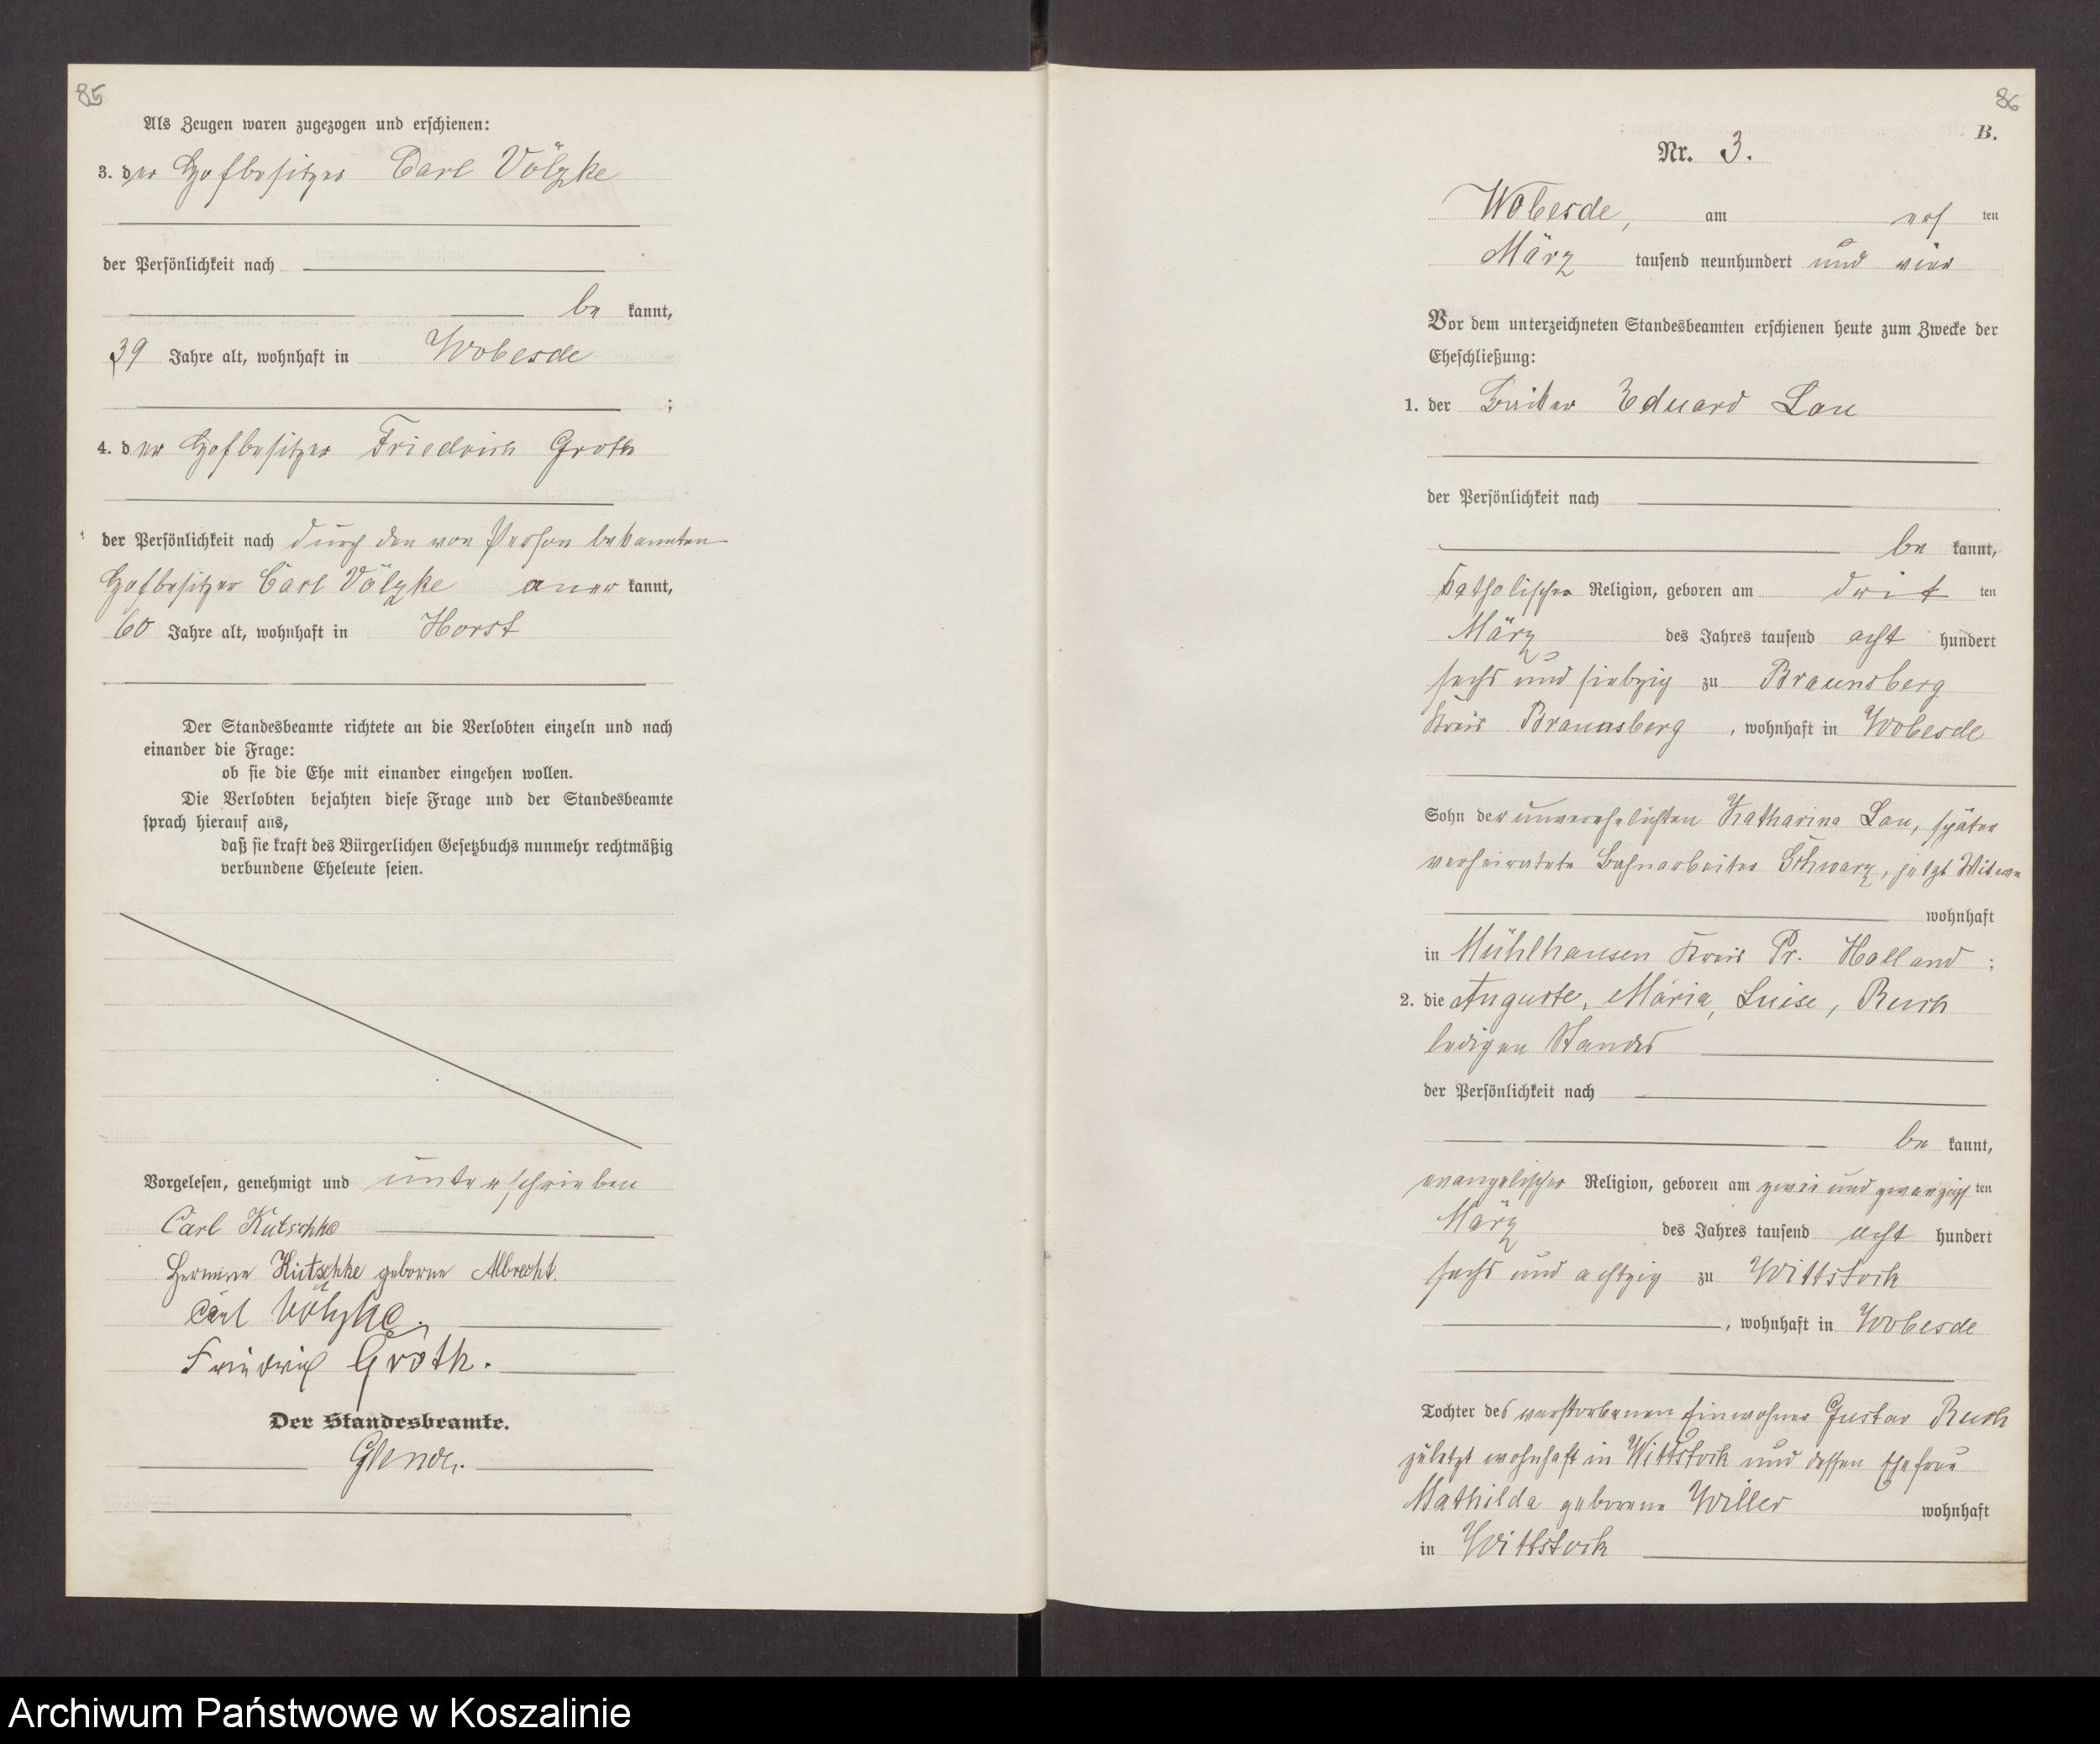 85
Als Zeugen waren zugezogen und erschienen:
3. der Hofbesitzer Carl Völzke
der Persönlichkeit nach
be kannt,
39 Jahre alt, wohnhaft in Wobesde
;
4. der Hofbesitzer Friedrich Groth
der Persönlichkeit nach durch den von Person bekannten
Hofbesitzer Carl Völzke aner kannt,
60 Jahre alt, wohnhaft in Horst
Der Standesbeamte richtete an die Verlobten einzeln und nach
einander die Frage:
ob sie die Ehe mit einander eingehen wollen.
Die Verlobten bejahten diese Frage und der Standesbeamte
sprach hierauf aus,
daß sie kraft des Bürgerlichen Gesetzbuchs nunmehr rechtmäßig
verbundene Eheleute seien.
Vorgelesen, genehmigt und unterschrieben
Carl Kutschke
Hermine Kutschke geborne Albrecht.
Carl Völzke.
Friedrich Groth.
Der Standesbeamte.
86
B.
Nr. 3.
Wobesde, am ers ten
März tausend neunhundert und vier
Vor dem unterzeichneten Standesbeamten erschienen heute zum Zwecke der
Eheschließung:
1. der Eduard Lau
der Persönlichkeit nach
be kannt,
katholischer Religion, geboren am drit ten
März des Jahres tausend acht hundert
sechs und siebzig zu Braunsberg
Kreis Braunsberg, wohnhaft in Wobesde
Sohn der unverehelichten Katharina Lau, später
verheiratete Bahnarbeiter Schwarz, jetzt Witwe
wohnhaft
in Mühlhausen Kreis Pr. Holland;
2. die Auguste, Maria, Luise, Rusch
ledigen Standes
der Persönlichkeit nach
be kannt,
evangelischer Religion, geboren am zwei und zwanzigs ten
März des Jahres tausend acht hundert
sechs und achtzig zu Wittstock
, wohnhaft in Wobesde
Tochter des verstorbenen Einwohner Gustav Rusch
zuletzt wohnhaft in Wittstock und dessen Ehefrau
Mathilda geborene Willer wohnhaft
in Wittstock
Archiwum Państwowe w Koszalinie